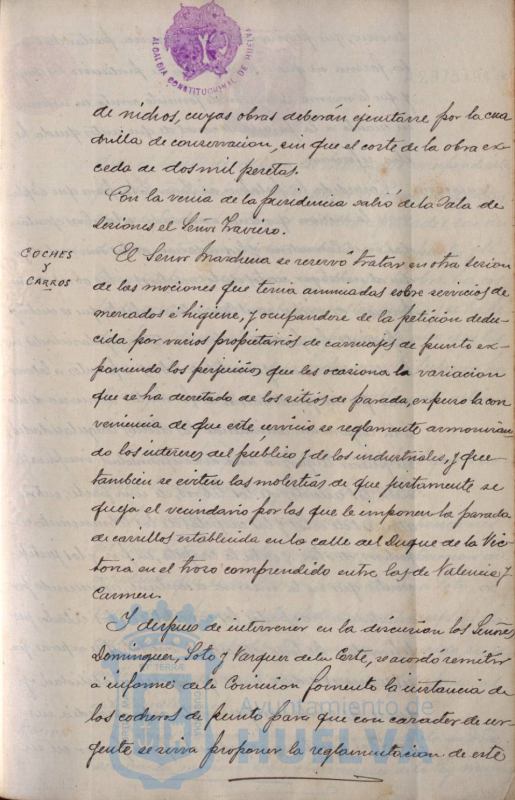 ALCALDIA CONSTITUCIONAL DE HUELVA
de nichos, cuyas obras deberán ejecutarse por la cua
drilla de conservacion, sin que el corte de la obra ex-
ceda de dos mil pesetas.
Con la venia de la presidencia salió de la Sala de
Sesiones el Señor Traviero.
COCHES
Y
CARROS
El Señor Marchena se reservó tratar en otra sesion
de las mociones que tenia anunciadas sobre servicios de
mercados é higiene, y ocupandose de la peticion dedu-
cida por varios propietarios de carruajes de punto ex-
poniendo los perjuicios que les ocasiona la variacion
que se ha decretado de los sitios de parada, expuso la con
veniencia de que este servicio se reglamente armonizan-
do los intereses del público y de los industriales, y que
tambien se eviten las molestias de que justamente se
queja el vecindario por las que le imponen la parada
de carrillos establecida en la calle del Duque de la Vic-
toria en el trozo comprendido entre las de Valencia y
Carmen.
Y despues de intervenir en la discusion los Señores
Dominguez, Soto y Vazquez de la Corte, se acordó remitir
á informe de la Comision fomento la instancia de
los cocheros de punto para que con caracter de ur-
gente se sirva proponer la reglamentacion de este
Ayuntamiento de
HUELVA